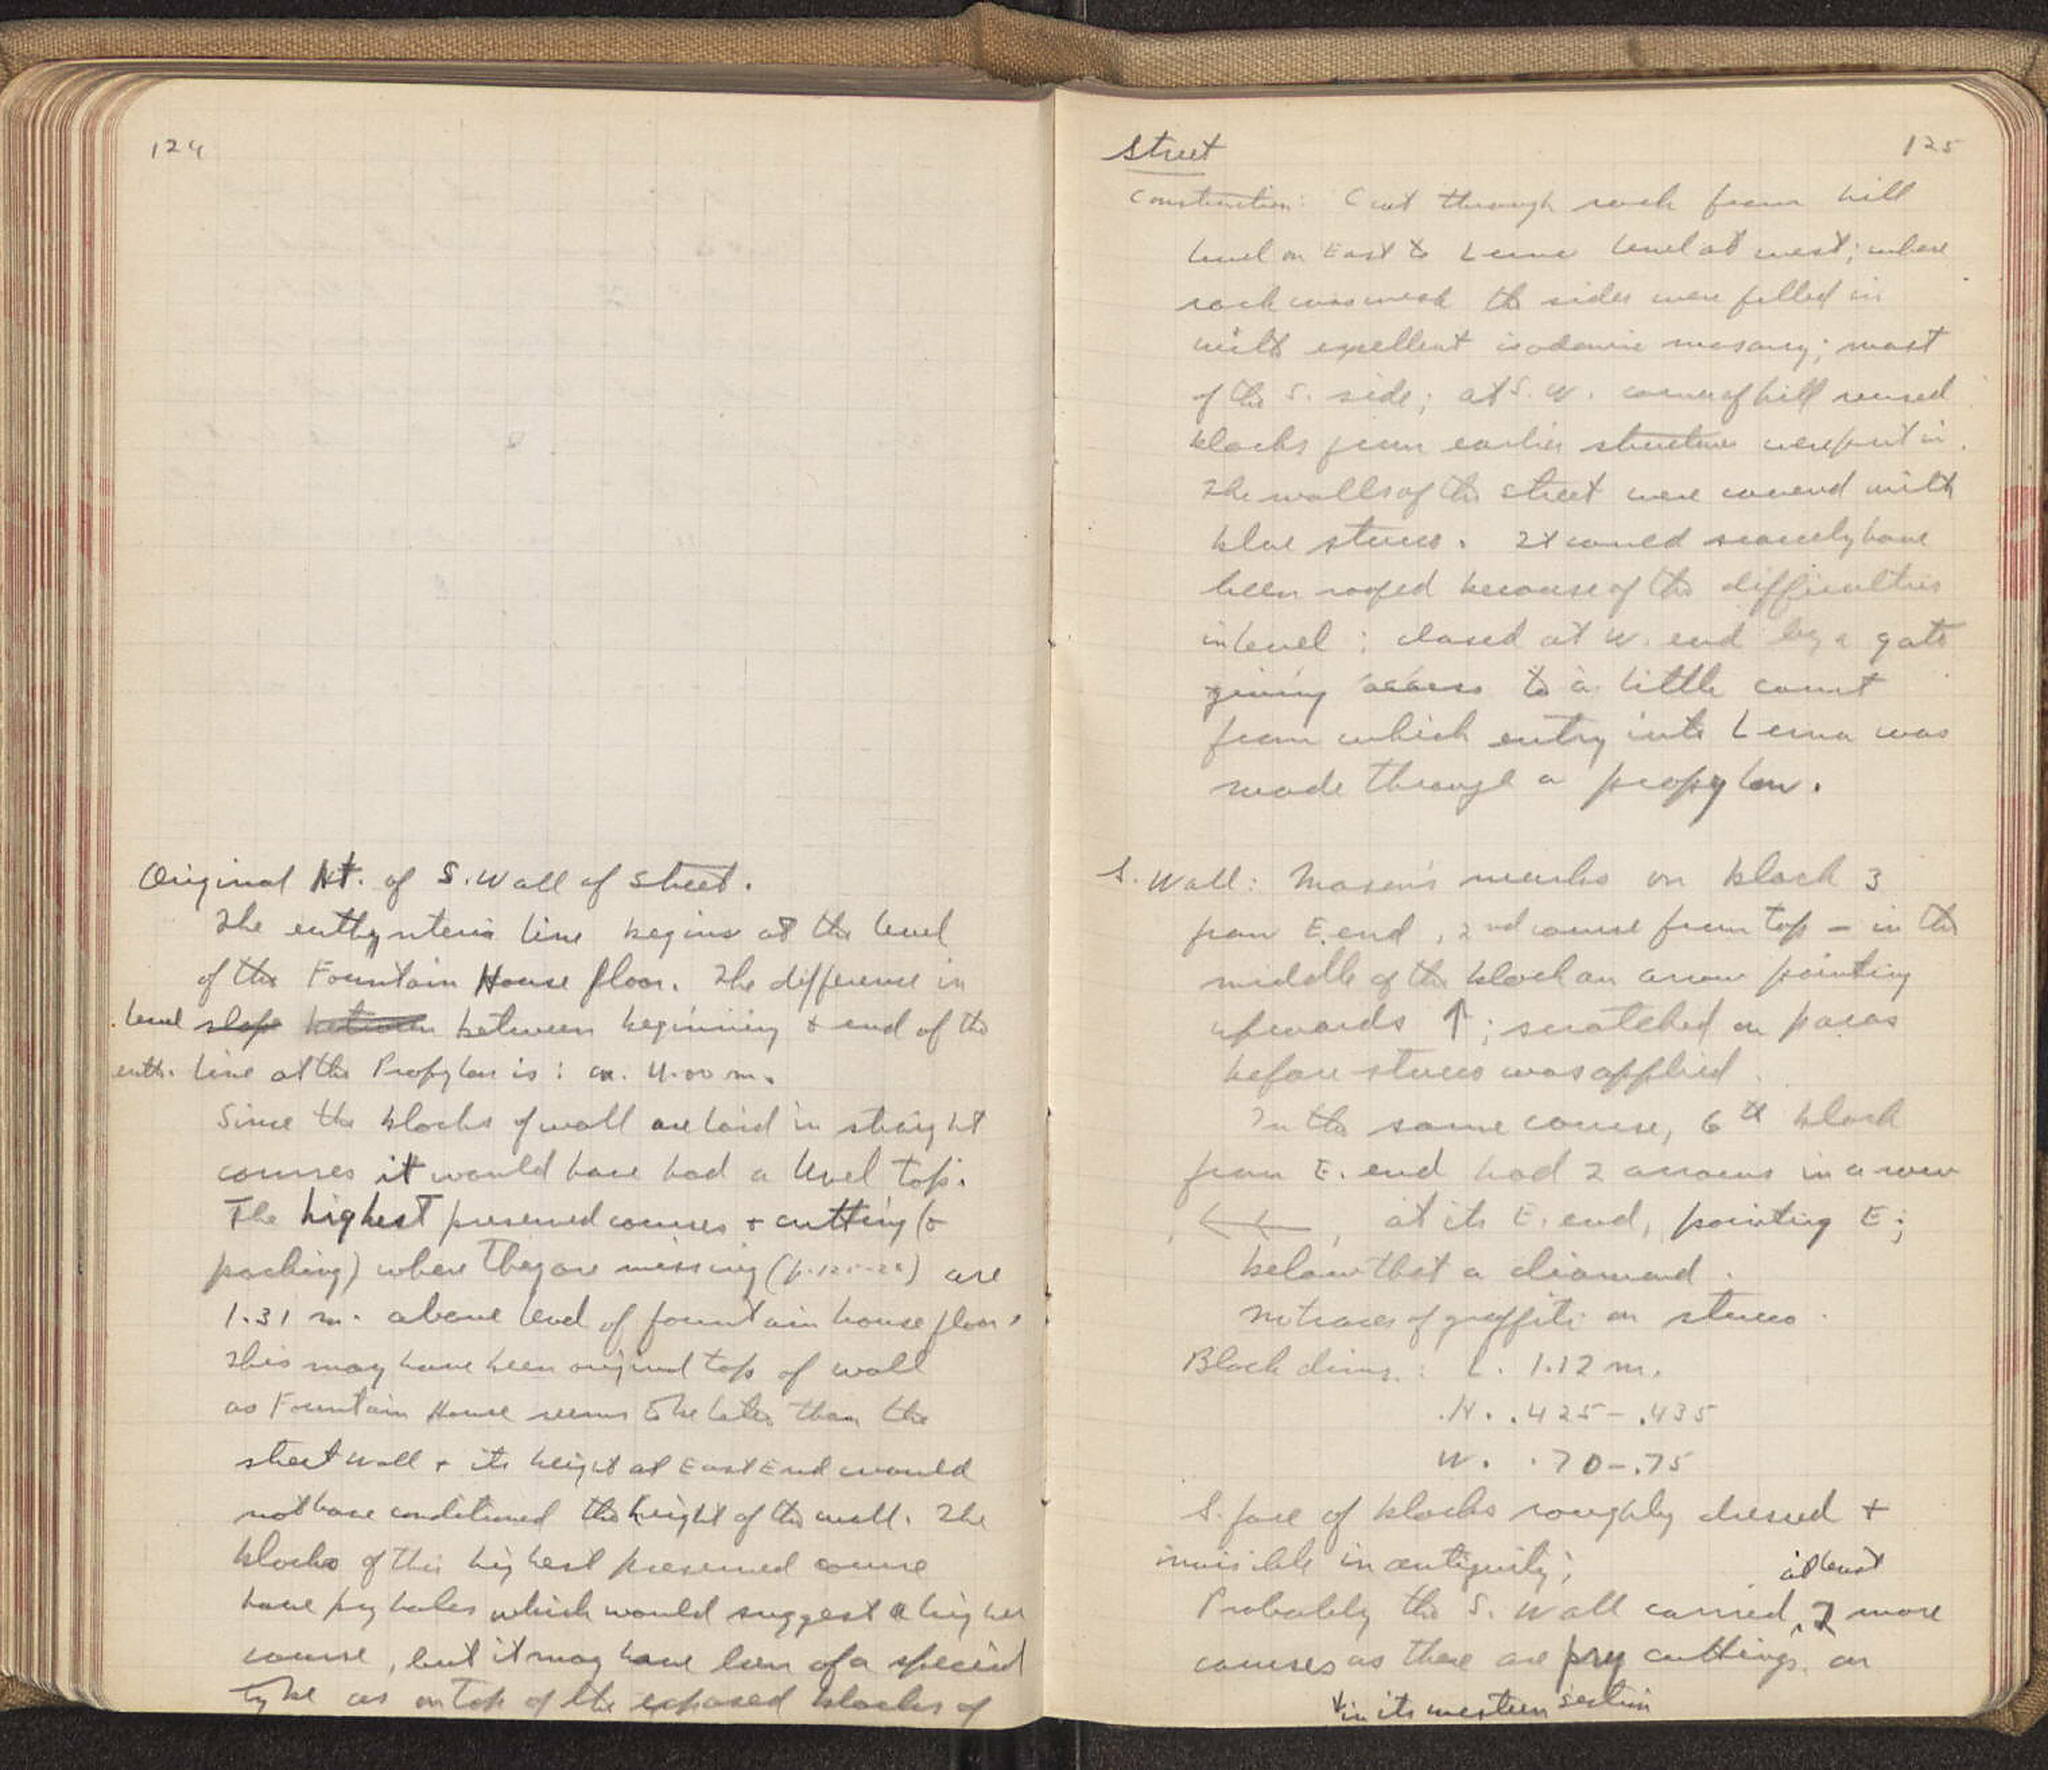 124
Original Ht. of S. Wall of Street.
The euthynteria line begins at the level
of the Fountain House floor. The difference in
level slope between between beginning + end of the
euth. line at the Propylon is: ca. 4.00 m.
Since the blocks of wall are laid in straight
courses it would have had a level top.
The highest preserved courses + cutting (+
packing) where they are missing (p. ) are
1.31 m. above level of fountain house floor.
This may have been original top of wall
as Fountain House seems to be later than the
street wall + its height at East End would
not have conditioned the height of the wall. The
blocks of this highest preserved course
have pry holes which would suggest a higher
course, but it may have been of a special
type as on top of the exposed blocks of
Street 125
Construction: Cut through rock from hill
level on East to Lerna level at west; where
rock was weak the sides were filled in
with excellent isodomic masonry; most
of the S. side; at S.W. corner of hill reused
blocks from earlier structure were put in.
The walls of the street were covered with
blue stucco. It could scarcely have
been roofed because of the difficulties
in level; closed at W. end by a gate
giving access to a little court
from which entry into Lerna was
made through a propylon.
S. Wall: Mason's marks on block 3
from E. end, 2nd course from top – in the
middle of the block an arrow pointing
upwards ↑; scratched on poros
before stucco was applied.
In the same course, 6th block
from E. end had 2 arrows in a row
, ←←, at its E. end, pointing E;
below that a diamond.
No traces of graffiti on stucco.
Block dims.: L. 1.12 m.
H. .425–.435
W. .70–.75
S. face of blocks roughly dressed +
invisible in antiquity;
at least
Probably the S. Wall carried 2 more
courses as there are pry cuttings on
+ in its western section